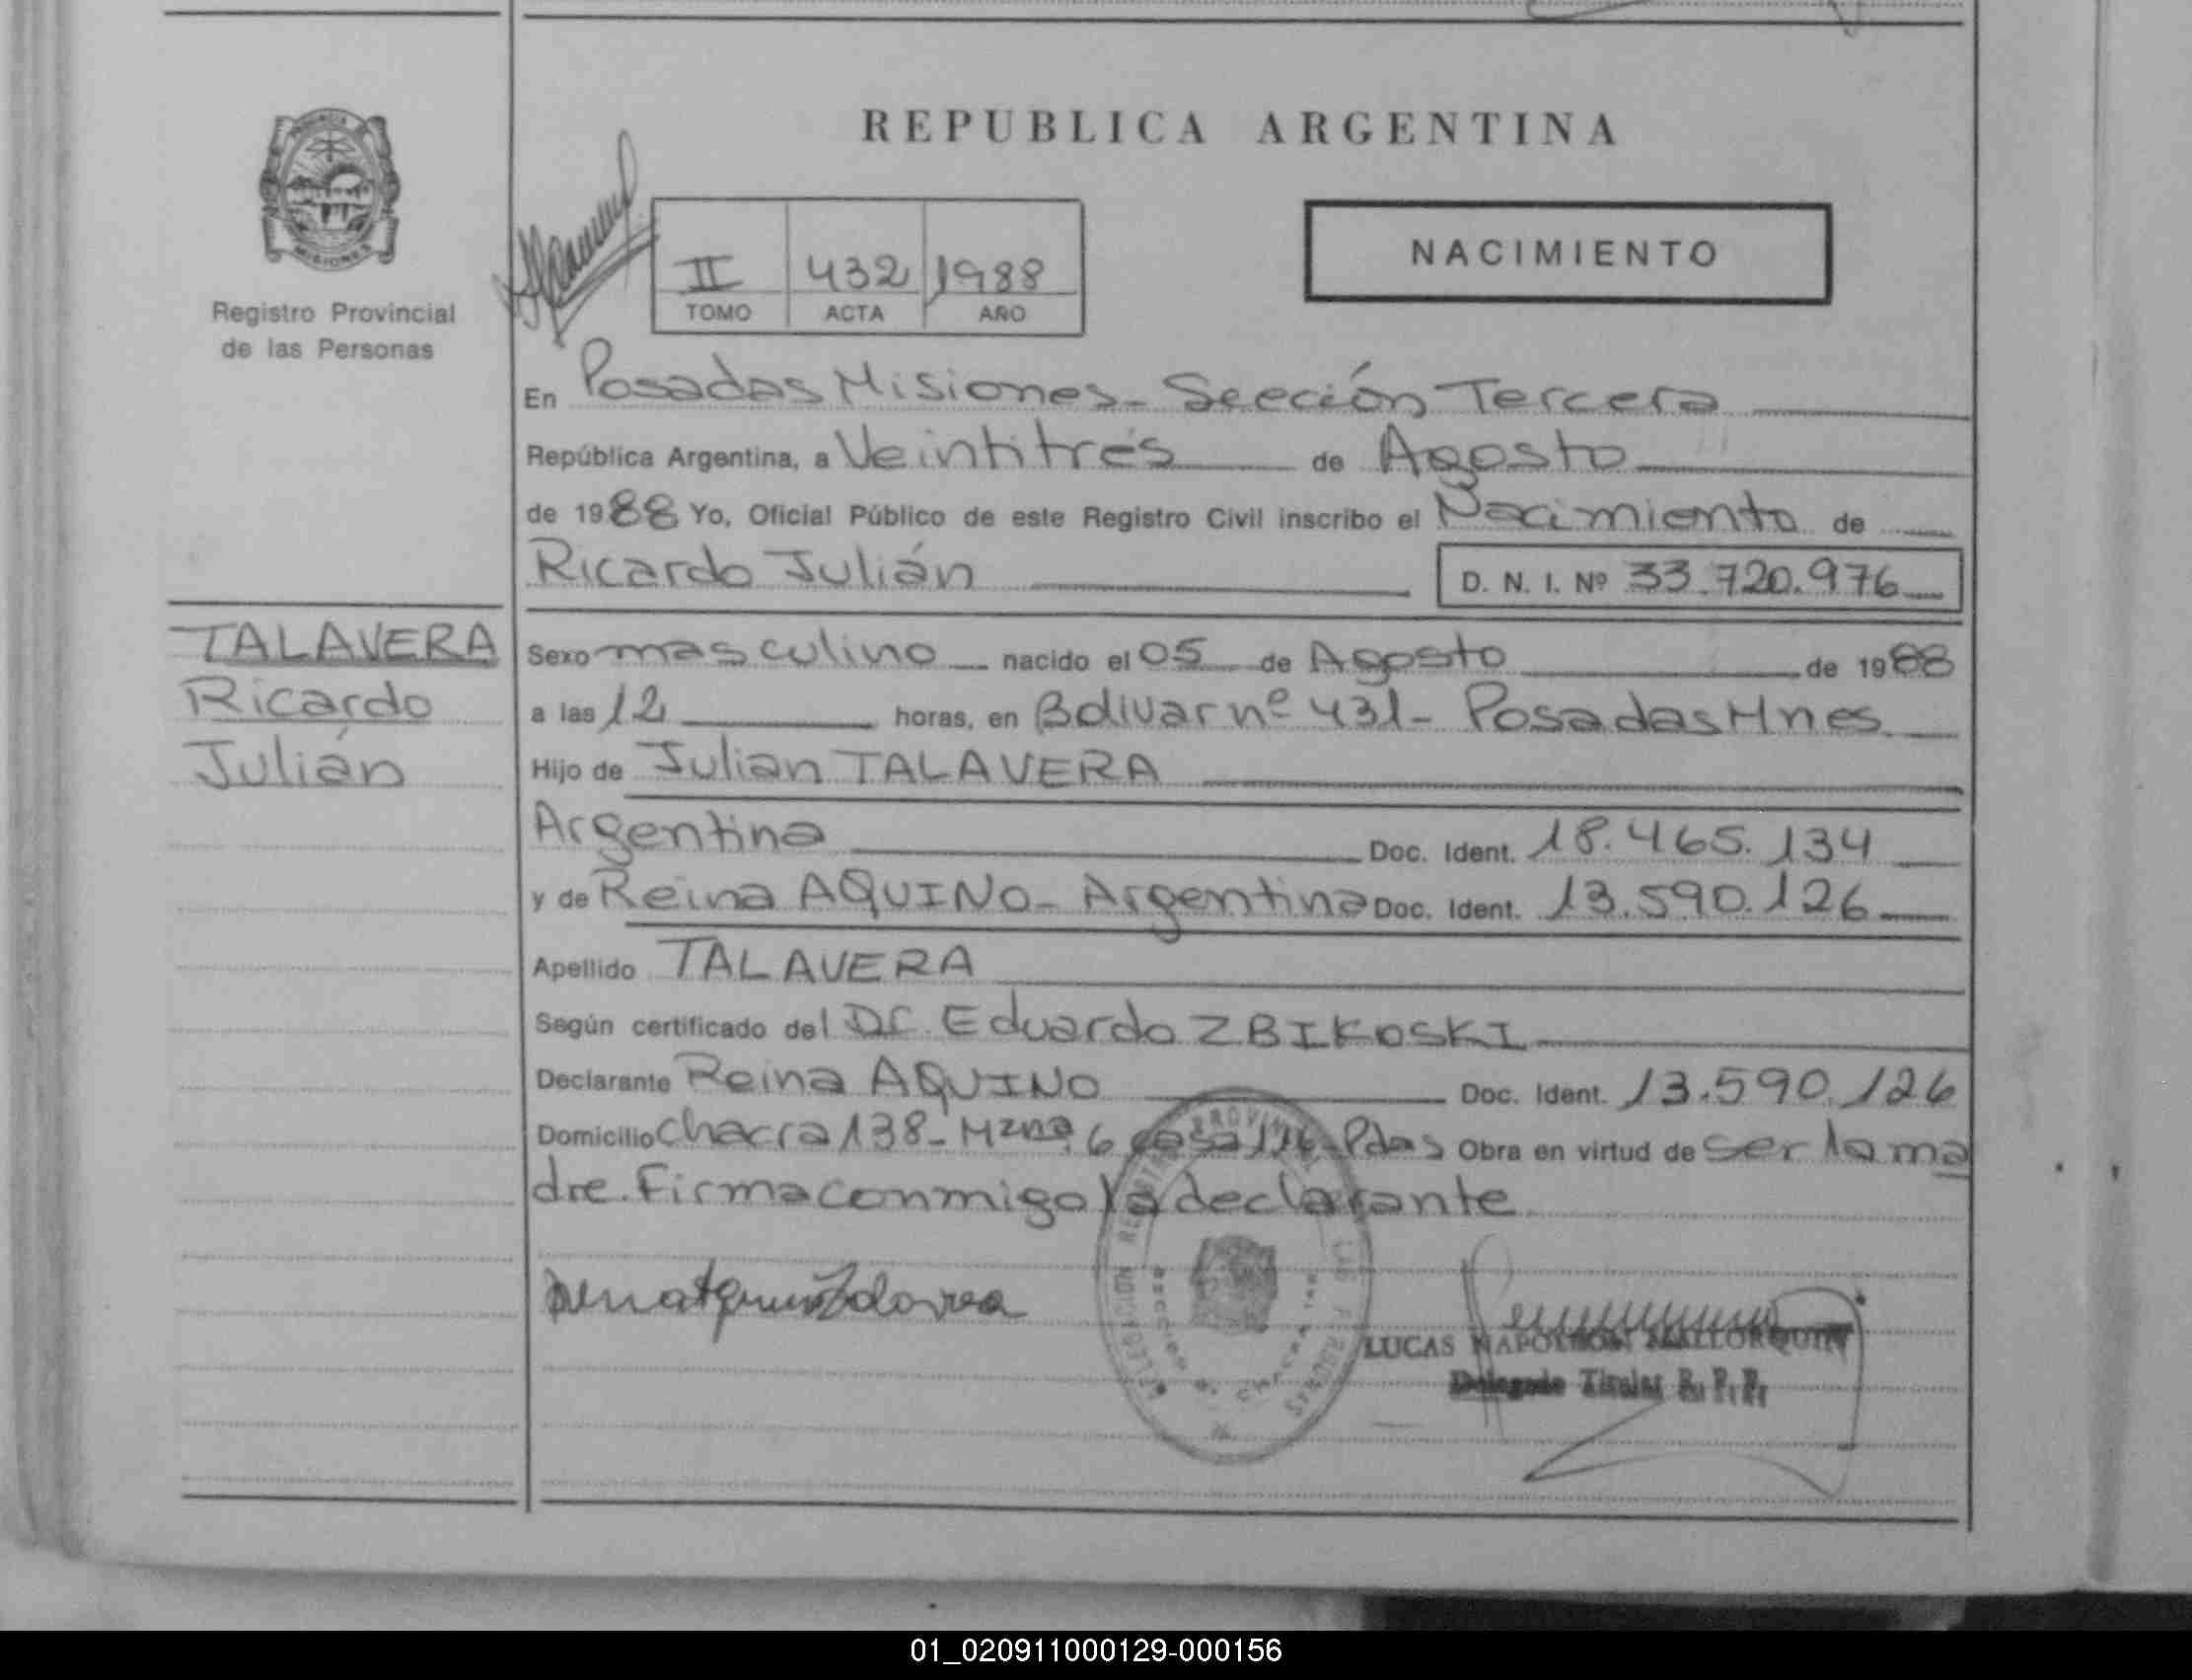 REPUBLICA ARGENTINA
MISIONES
Registro Provincial
de las Personas
II 432 1988
TOMO ACTA AÑO
NACIMIENTO
En Posadas Misiones - Sección Tercera
República Argentina, a Veintitrés de Agosto
de 1988 Yo, Oficial Público de este Registro Civil inscribo el Nacimiento de
Ricardo Julián D. N. I. Nº 33.720.976
TALAVERA
Ricardo
Julián
Sexo masculino nacido el 05 de Agosto de 1988
a las 12 horas, en Bolivar nº 431 - Posadas Mnes
Hijo de Julian TALAVERA
Argentina Doc. Ident. 18.465.134
y de Reina AQUINO - Argentina Doc. Ident. 13.590.126
Apellido TALAVERA
Según certificado del Dr. Eduardo ZBIKOSKI
Declarante Reina AQUINO Doc. Ident. 13.590.126
Domicilio Chacra 138 - Mzna. 6 casa 116 - Pdas Obra en virtud de ser la ma
dre. Firma conmigo la declarante
LUCAS NAPOLEON MALLORQUIN
Delegado Titular R. P. P.
01_020911000129-000156